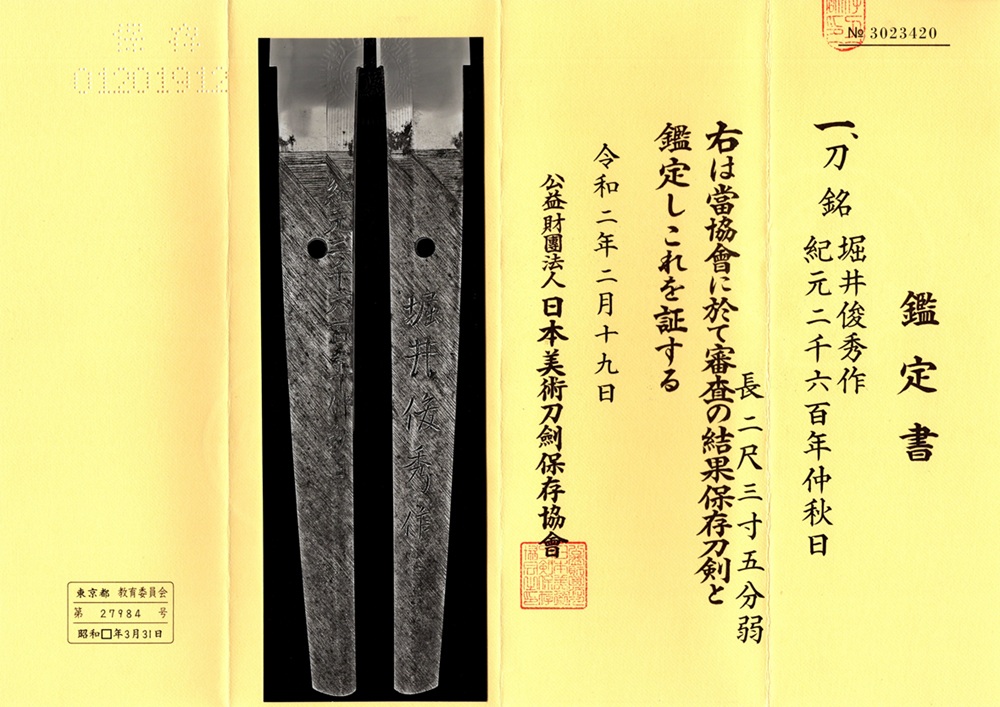 № 3023420
鑑定書
一、刀 銘 堀井俊秀作
紀元二千六百年仲秋日
長二尺三寸五分弱
右は當協會に於て審査の結果保存刀剣と
鑑定しこれを証する
令和二年二月十九日
公益財團法人 日本美術刀劍保存協會
堀井俊秀作
保存
01201912
東京都 教育委員会
第 27984 号
昭和□年3月31日